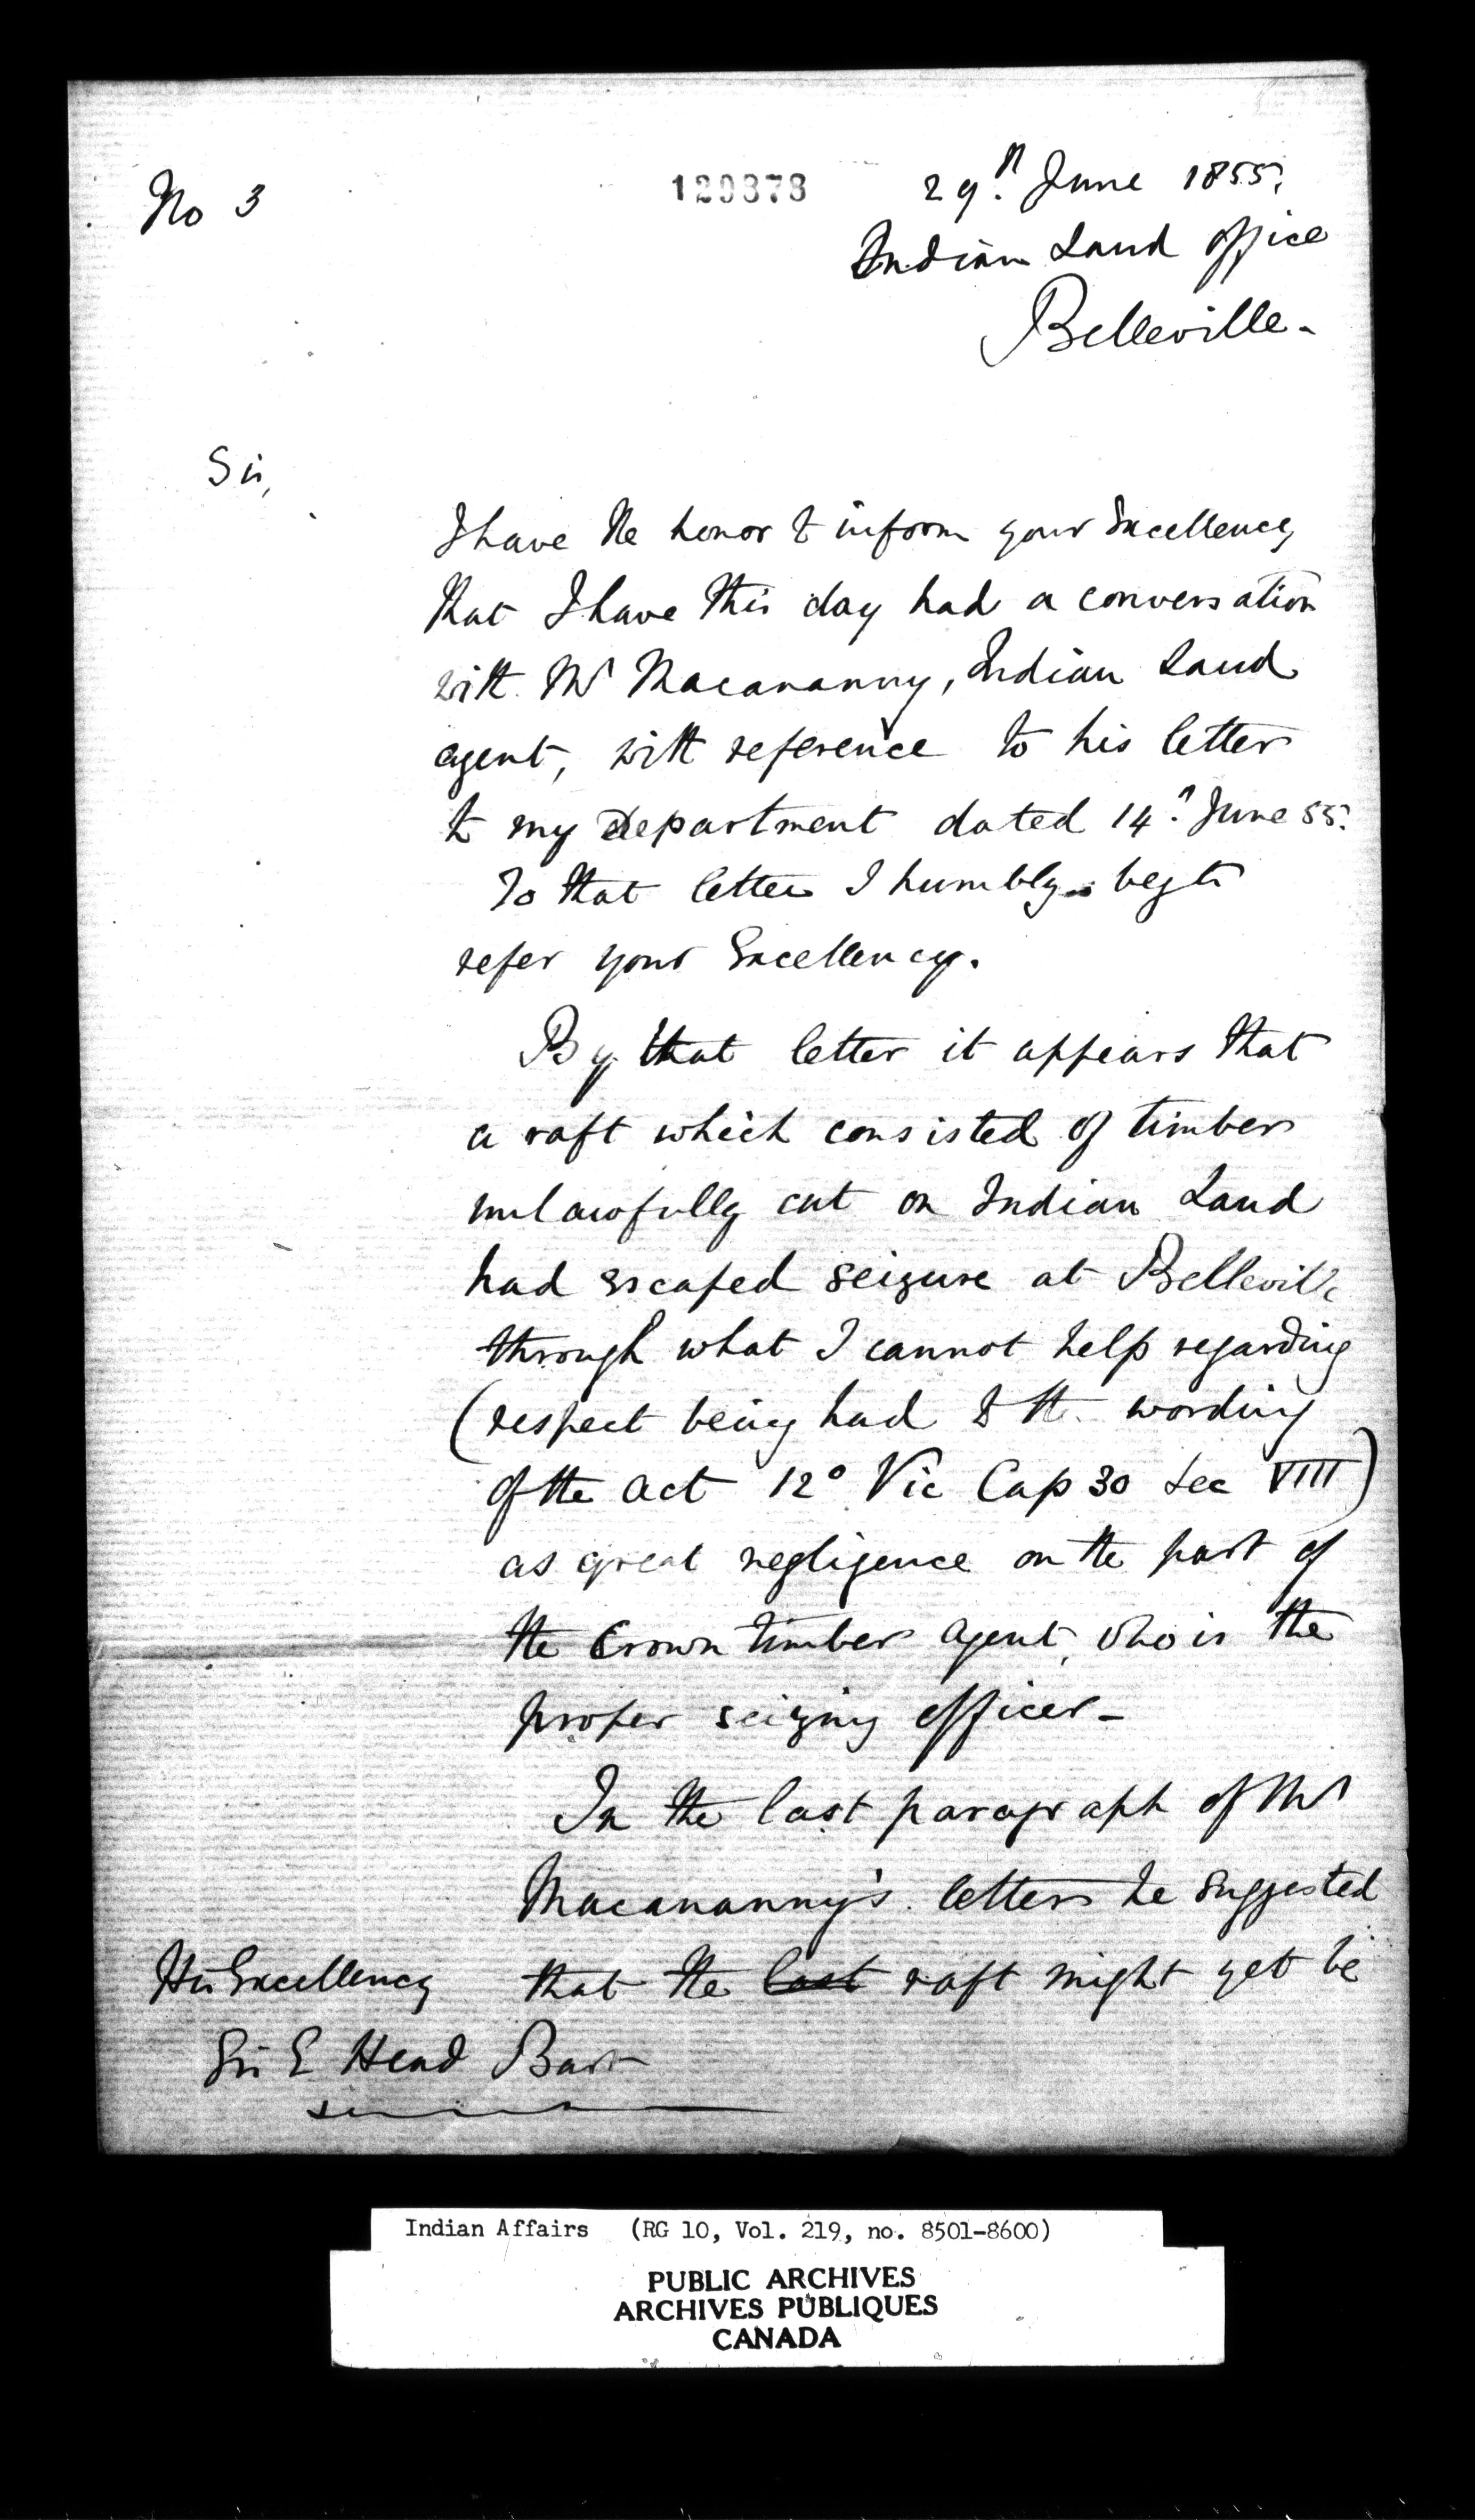 No 3
120373
29th June 1855.
Indian Land Office
Belleville-
Sir,
I have the honor to inform your Excellency
that I have this day had a conversation
with Mr Macananny, Indian Land
agent, with reference to his letter
to my Department dated 14th June 55.
To that letter I humbly beg to
refer your Excellency.
By that letter it appears that
a raft which consisted of timber
unlawfully cut on Indian Land
had escaped seizure at Belleville
through what I cannot help regarding
(respect being had to the wording
of the act 12° Vic Cap 30 Sec VIII)
as great negligence on the part of
the Crown timber agent, who is the
proper seizing officer-
In the last paragraph of Mr
Macananny's letter he suggested
that the last raft might yet be
His Excellency
Sir E Head Bart
Indian Affairs (RG 10, Vol. 219, no. 8501-8600)
PUBLIC ARCHIVES
ARCHIVES PUBLIQUES
CANADA